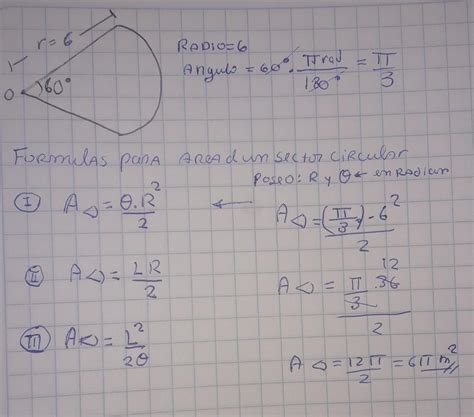 r=6
60°
O
RADIO=6
Angulo = 60°. π rad / 180° = π / 3
FORMULAS PARA AREA D UN SECTOR CIRCULAR
POSEO: R y θ ← en RADian
I A◁ = θ.R² / 2 ← A◁ = (π/3) - 6² / 2
II A◁ = LR / 2
A◁ = π / 3 . 36 12 / 2
III A◁ = L² / 2θ
A◁ = 12π / 2 = 6π m²